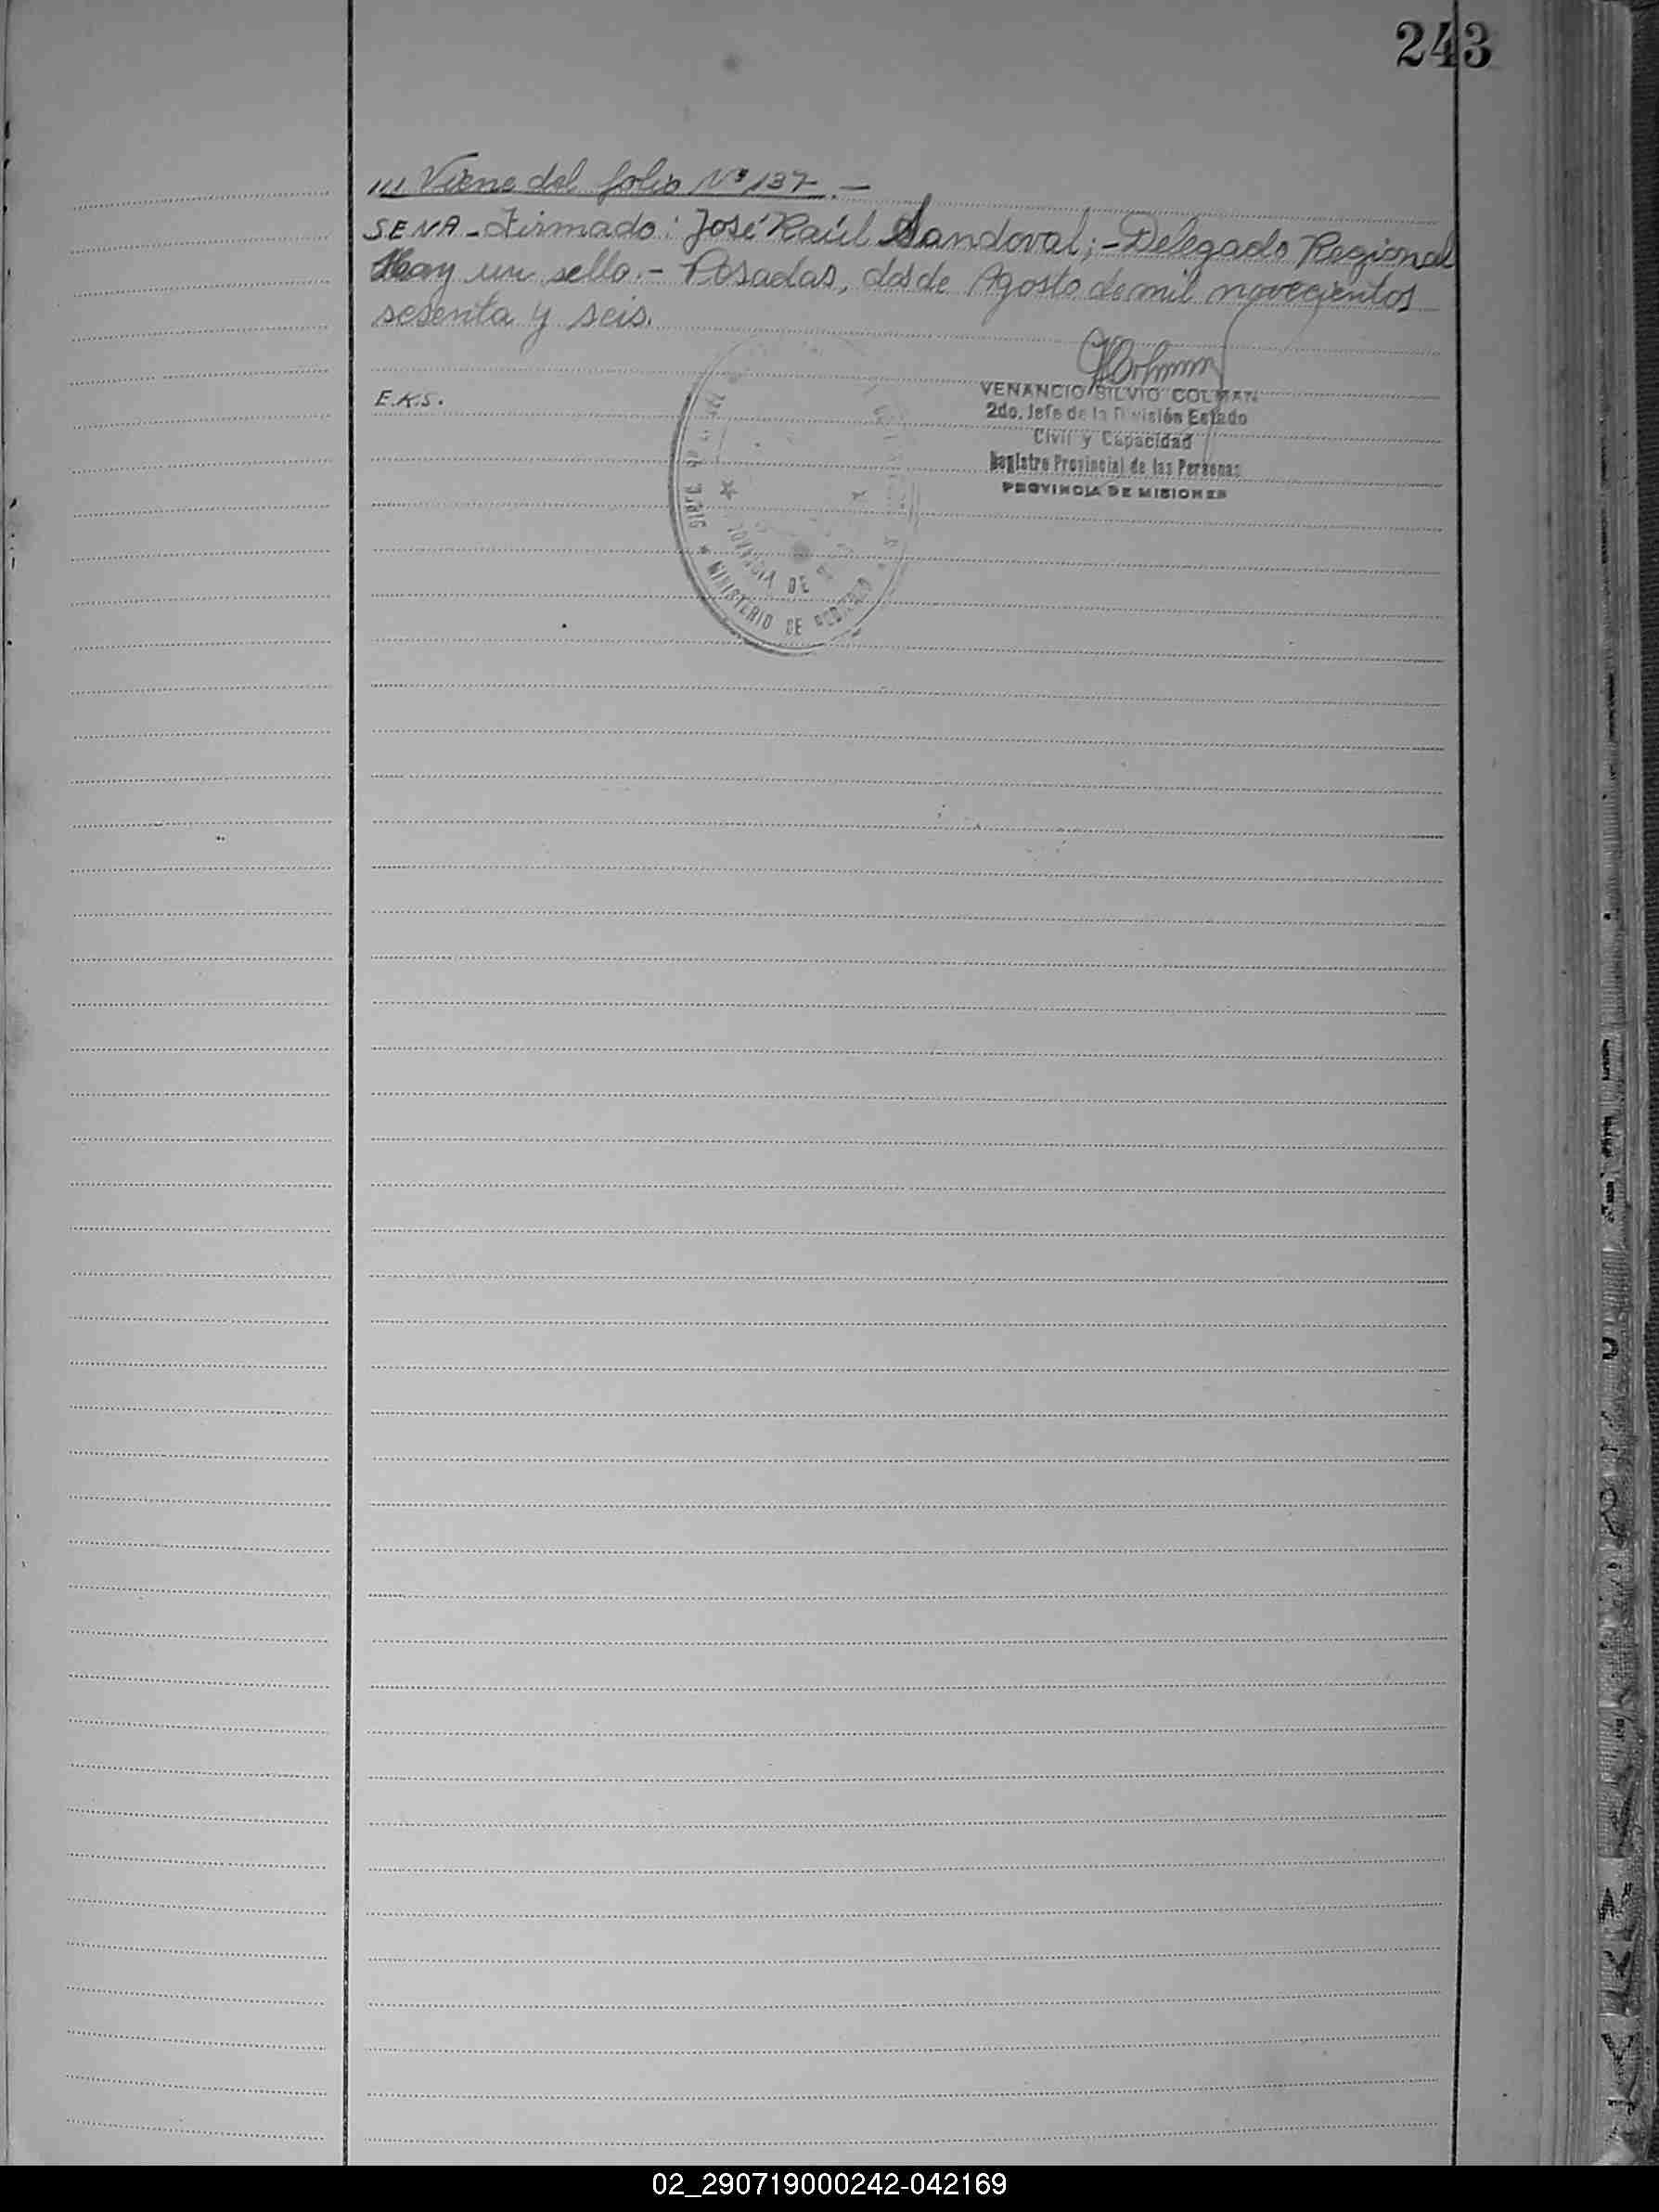 243
/// Viene del folio Nº 137.-
SENA - Firmado: José Raúl Sandoval; - Delegado Regional
Hay un sello. - Posadas, dos de Agosto de mil novecientos
sesenta y seis.
VENANCIO SILVIO COLMAN
2do. Jefe de la División Estado
Civil y Capacidad
Registro Provincial de las Personas
PROVINCIA DE MISIONES
E.K.S.
MINISTERIO DE GOBIERNO
02_290719000242-042169